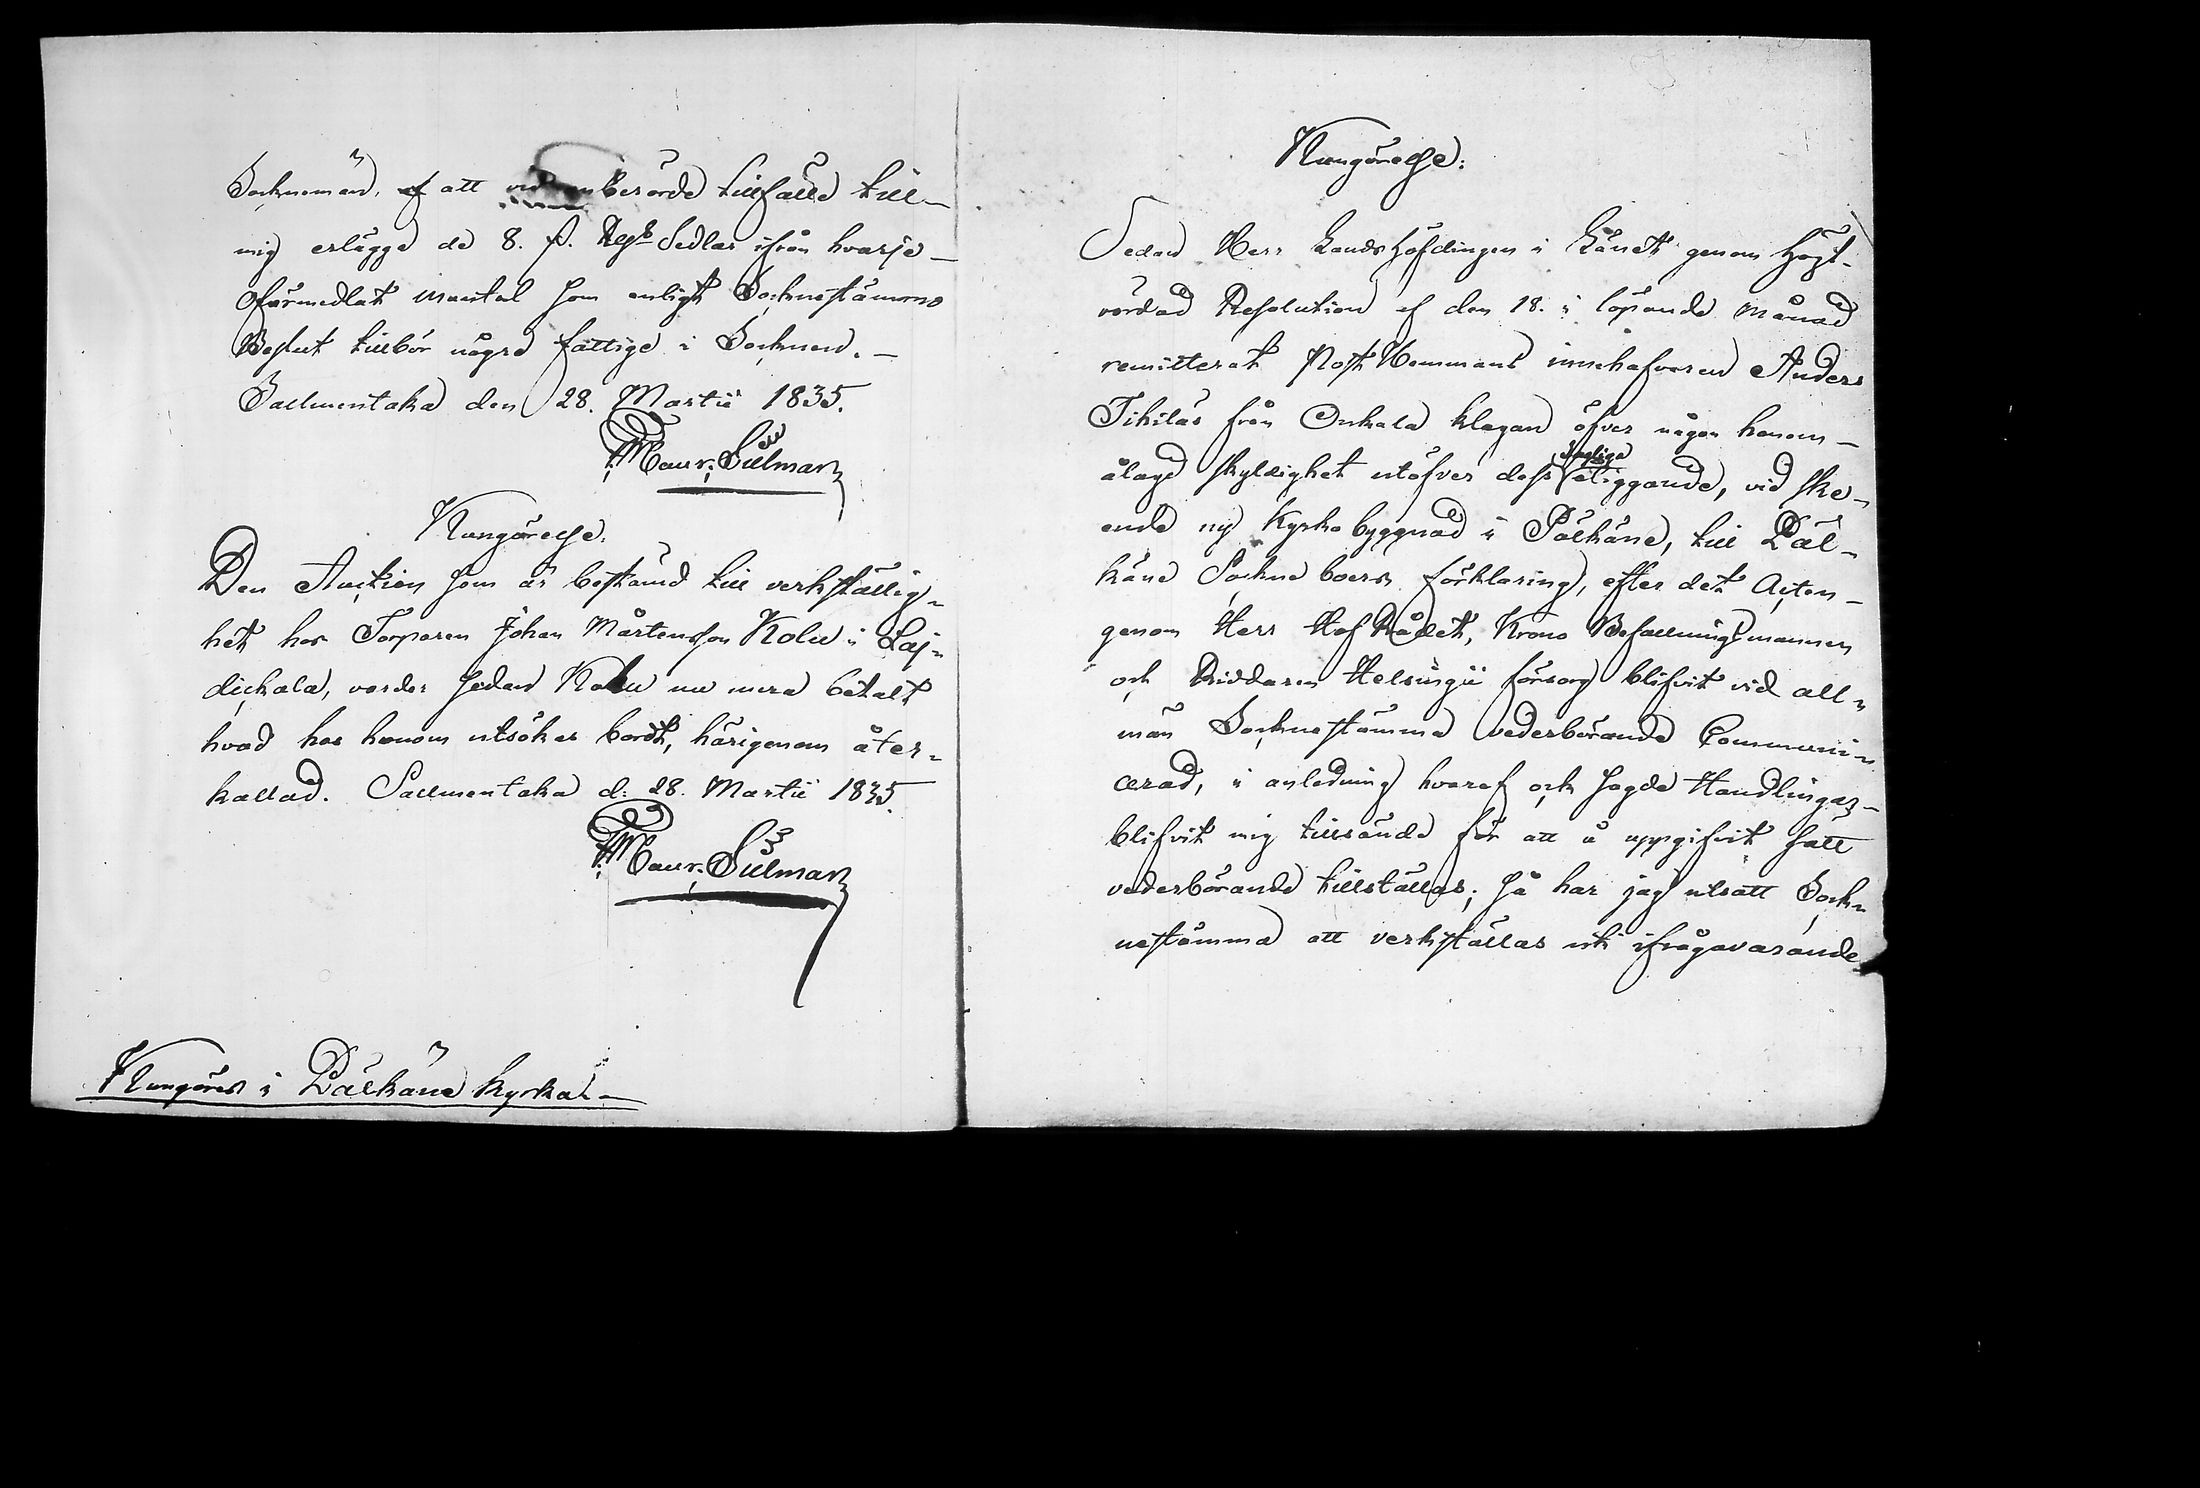 Sockneman, af att vid berörde tillfälle till
mig erlägga de 8. s. Rgs Sedlar ifrån hvarje
oförmedlat mantal som enligt Socknestämmo
Beslut tillbör någre fattige i Socknen. —
Sallmentaka den 28. Martii 1835.
Maur. Silmar
Kungörelse.
Den Auction som är bestämd till verkställig-
het hos Torparen Johan Mårtensson Kolu i Laj-
dickala, varder sedan Kolu nu mera betalt
hvad hos honom utsökas bordt, härigenom åter-
kallad. Sallmentaka d: 28. Martii 1835.
Maur. Silmar
Kungöres i Pälkäne kyrka. —
Kungörelse:
Sedan Herr LandsHöfdingen i Länet genom Högt-
vördad Resolution af den 18. i löpande Månad
remitterat PostHemmans innehafvaren Anders
Tikilas från Onkala klagan öfver någon honom
ålagd skyldighet utöfver dess vanliga åliggande, vid ske-
ende ny Kyrko byggnad i Pälkäne, till Päl-
käne Sockne boers förklaring, efter det Acten
genom Herr Hof Rådet, Krono Befallningsmannen
och Riddaren Helsingii försorg blifvit vid all-
män Socknestämma vederbörande Communi-
cerad, i anledning hvaraf ock sagde Handlingar
blifvit mig tillsände för att å uppgifvit sätt
vederbörande tillställas; Så har jag utsatt Sock-
nestämma att verkställas uti ifrågavarande